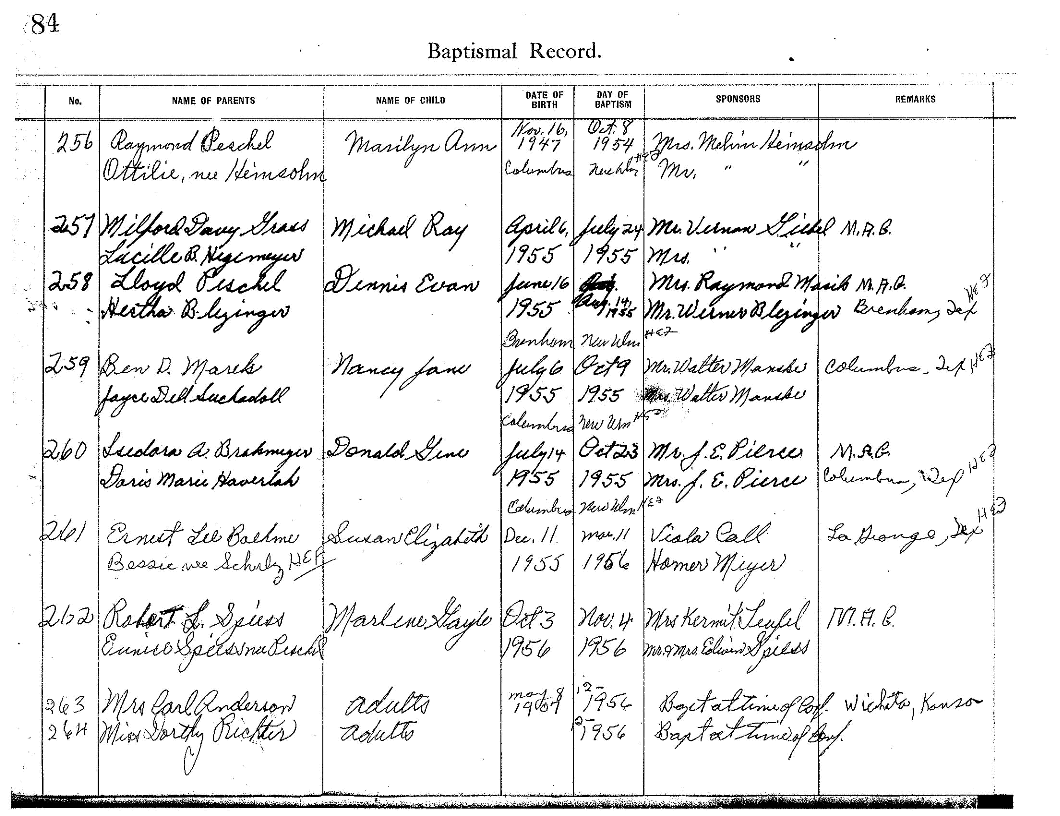 84
Baptismal Record.
No. NAME OF PARENTS NAME OF CHILD DATE OF BIRTH DAY OF BAPTISM SPONSORS REMARKS
256 Raymond Peschel Marilyn Ann Nov. 16, 1947 Oct. 8 1954 Mrs. Melvin Heinsohn
Ottilie, nee Heinsohn Columbus New Ulm HEZ Mr. " "
257 Milford Davy Grass Michael Ray April 6, July 24 Mr. Vernon Giebel M.A.B.
Lucille B. Hegemeyer 1955 1955 Mrs. " "
258 Lloyd Peschel Dennis Evan June 16 Aug. Mrs. Raymond Marik M.A.B.
Hertha Blezinger 1955 Aug. 14, 1955 Mr. Werner Blezinger Brenham, Tex HEZ
Brenham New Ulm HEZ
259 Ben D. Marek Nancy Jane July 6 Oct 9 Mr. Walter Manske Columbus, Tex HEZ
Joyce Dell 1955 1955 Mrs. Walter Manske
Columbus New Ulm HEZ
260 Isadora A. Brahmeyer Donald Gene July 14 Oct 23 Mr. J. E. Pierce M.A.B.
Doris Marie Haverlah 1955 1955 Mrs. J. E. Pierce Columbus, Tex HEZ
Columbus New Ulm HEZ
261 Ernest Lee Boehme Susan Elizabeth Dec. 11. Mar. 11 Viola Call La Grange, Tex HEZ
Bessie nee Schulz HEZ 1955 1956 Homer Meyer
262 Robert L. Spiess Marlene Gayle Oct 3 Nov. 4 Mrs Kermit Teufel M.A.B.
Eunice Spiess nee Peschel 1956 1956 Mr. & Mrs. Edwin Spiess
263 Mrs Carl Anderson adults May 8 12- 1956 Bapt at time of Conf. Wichita, Kansas
264 Miss Dorthy Richter adults 2- 1956 Bapt at time of Conf.